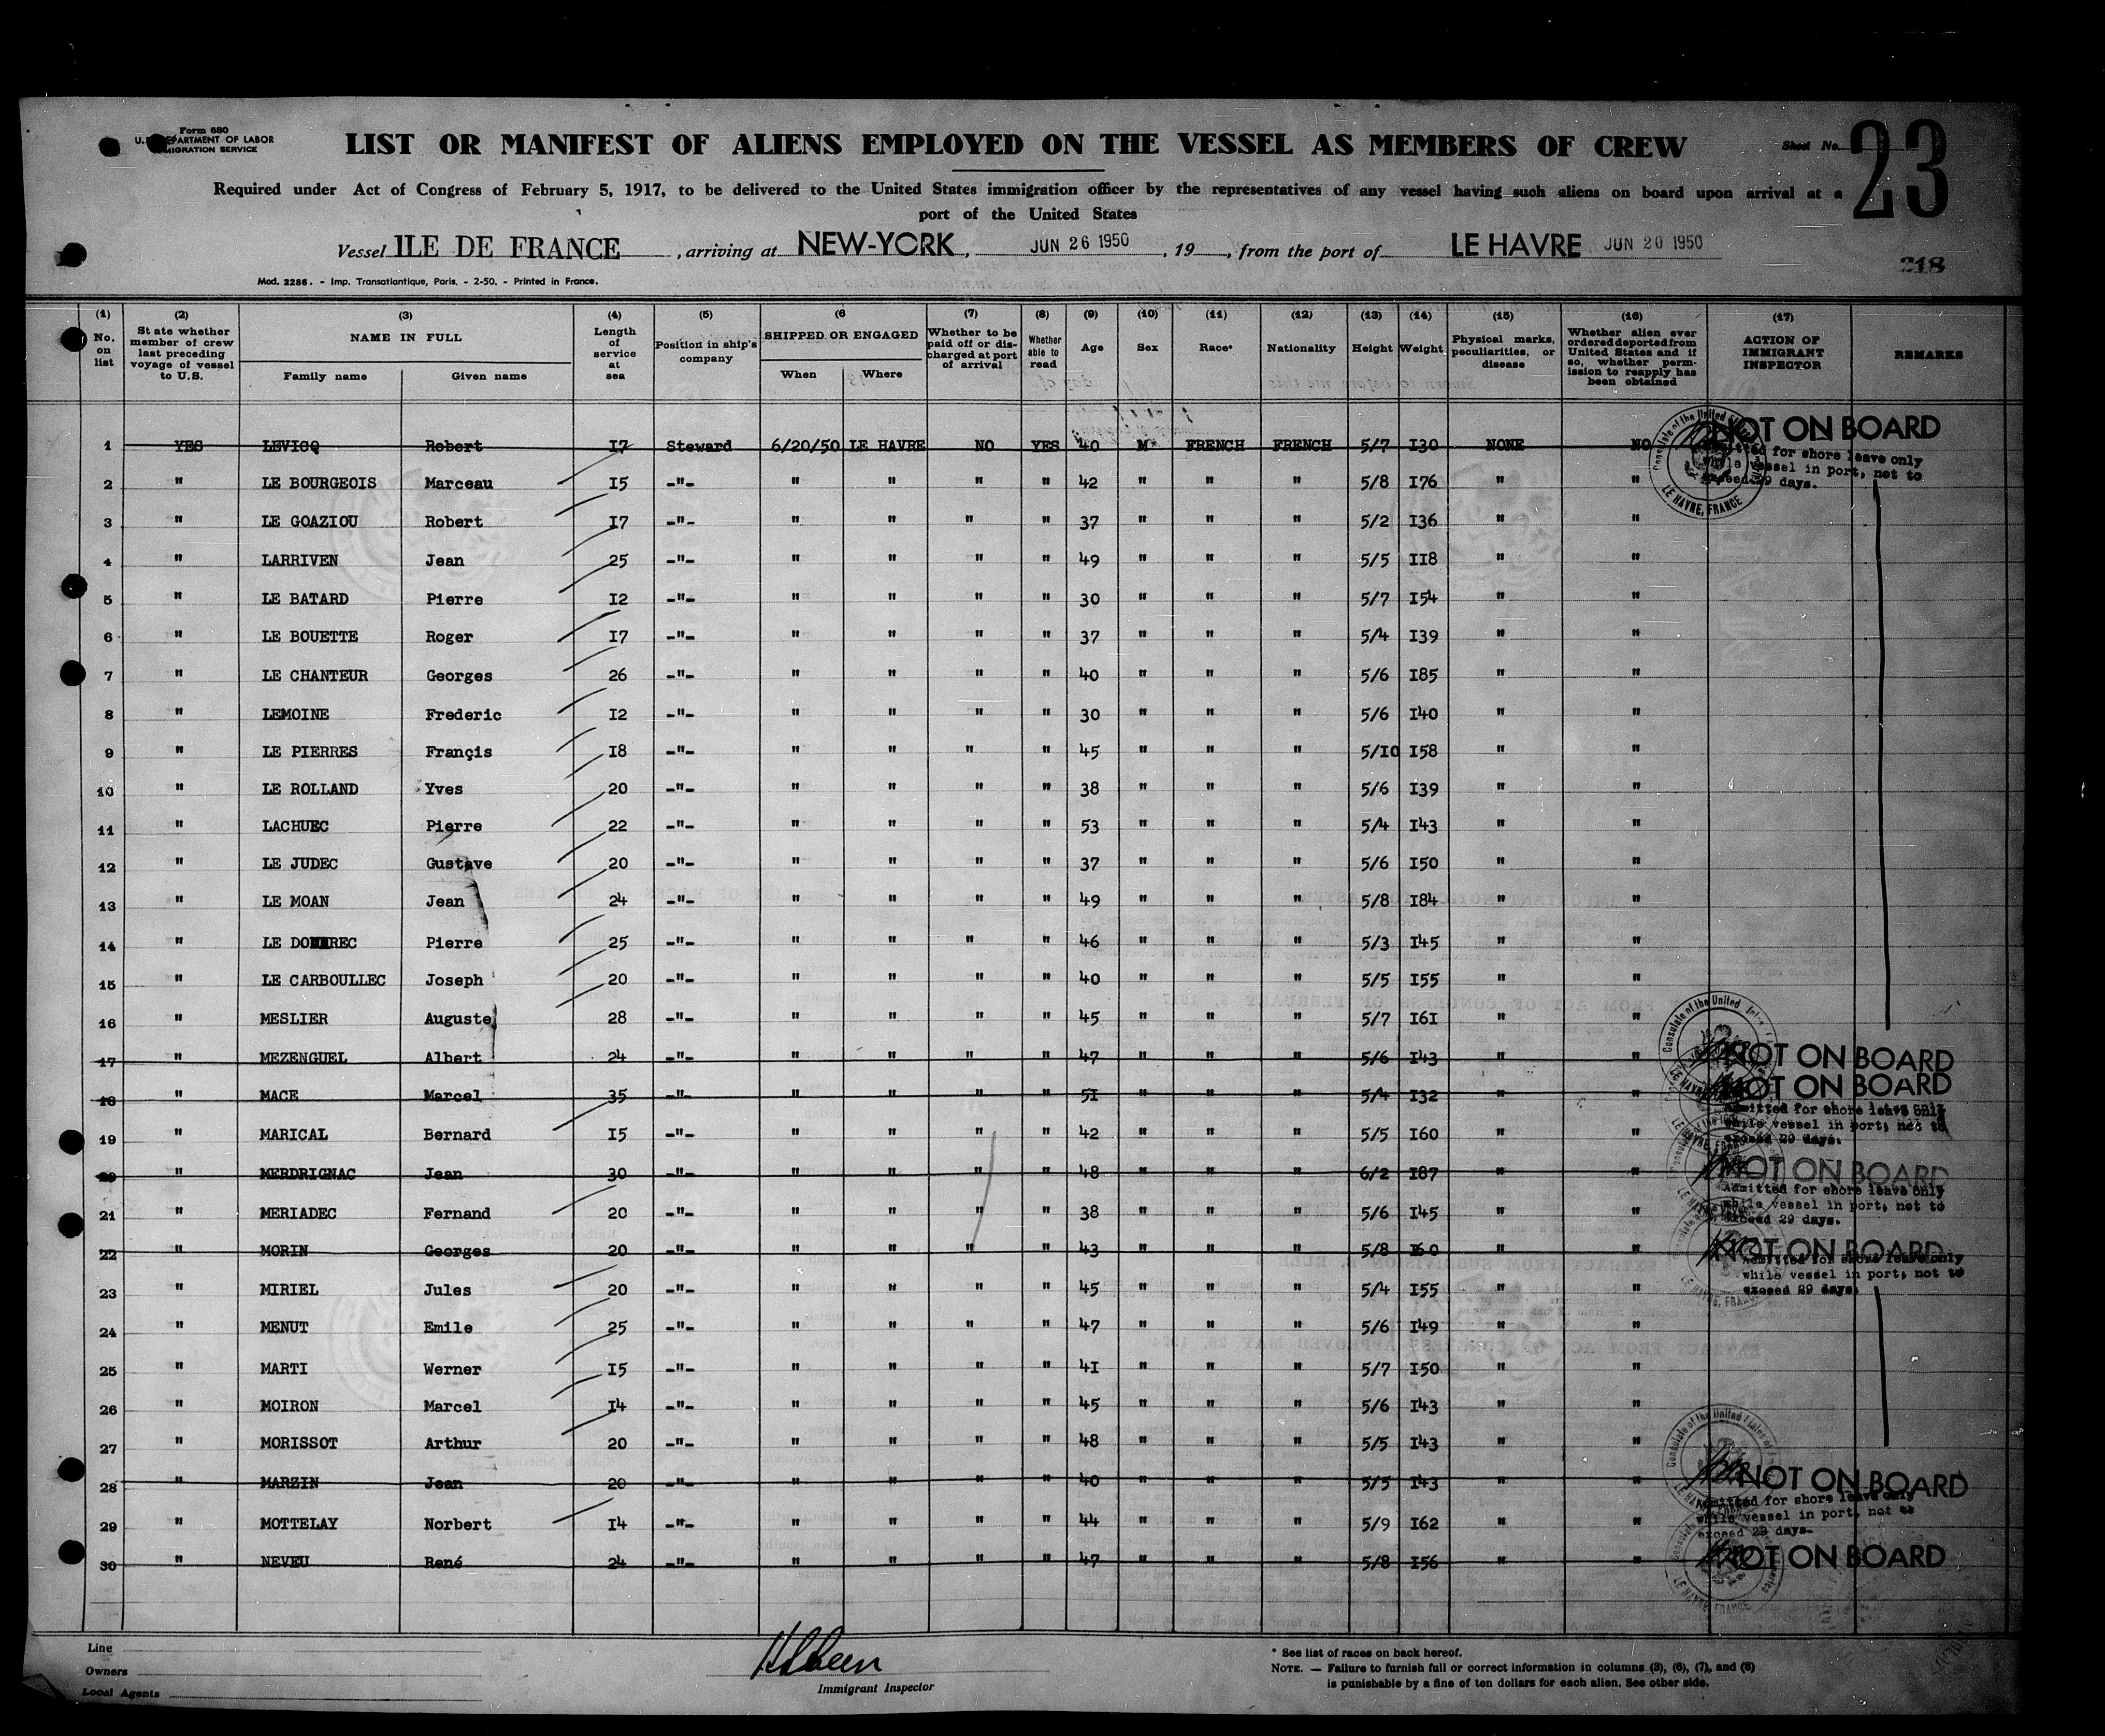 Form 680
U.S. DEPARTMENT OF LABOR
IMMIGRATION SERVICE
LIST OR MANIFEST OF ALIENS EMPLOYED ON THE VESSEL AS MEMBERS OF CREW
Sheet No. 23
Required under Act of Congress of February 5, 1917, to be delivered to the United States immigration officer by the representatives of any vessel having such aliens on board upon arrival at a
port of the United States
Vessel ILE DE FRANCE, arriving at NEW-YORK, JUN 26 1950, 19, from the port of LE HAVRE JUN 20 1950
218
Mod. 2286. - Imp. Transatlantique, Paris. - 2-50. - Printed in France.
(1) No. on list (2) State whether member of crew last preceding voyage of vessel to U.S. (3) NAME IN FULL Family name Given name (4) Length of service at sea (5) Position in ship's company (6 SHIPPED OR ENGAGED When Where (7) Whether to be paid off or discharged at port of arrival (8) Whether able to read (9) Age (10) Sex (11) Race* (12) Nationality (13) Height (14) Weight (15) Physical marks, peculiarities, or disease (16) Whether alien ever ordered deported from United States and if so, whether permission to reapply has been obtained (17) ACTION OF IMMIGRANT INSPECTOR REMARKS
1 YES LEVICQ Robert I7 Steward 6/20/50 LE HAVRE NO YES 40 M FRENCH FRENCH 5/7 I30 NONE NO NOT ON BOARD
Admitted for shore leave only
while vessel in port, not to
exceed 29 days.
LE HAVRE, FRANCE
2 " LE BOURGEOIS Marceau I5 -"- " " " " 42 " " " 5/8 I76 " "
3 " LE GOAZIOU Robert I7 -"- " " " " 37 " " " 5/2 I36 " "
4 " LARRIVEN Jean 25 -"- " " " " 49 " " " 5/5 II8 " "
5 " LE BATARD Pierre I2 -"- " " " " 30 " " " 5/7 I54 " "
6 " LE BOUETTE Roger I7 -"- " " " " 37 " " " 5/4 I39 " "
7 " LE CHANTEUR Georges 26 -"- " " " " 40 " " " 5/6 I85 " "
8 " LEMOINE Frederic I2 -"- " " " " 30 " " " 5/6 I40 " "
9 " LE PIERRES Françis I8 -"- " " " " 45 " " " 5/I0 I58 " "
10 " LE ROLLAND Yves 20 -"- " " " " 38 " " " 5/6 I39 " "
11 " LACHUEC Pierre 22 -"- " " " " 53 " " " 5/4 I43 " "
12 " LE JUDEC Gustave 20 -"- " " " " 37 " " " 5/6 I50 " "
13 " LE MOAN Jean 24 -"- " " " " 49 " " " 5/8 I84 " "
14 " LE Pierre 25 -"- " " " " 46 " " " 5/3 I45 " "
15 " LE CARBOULLEC Joseph 20 -"- " " " " 40 " " " 5/5 I55 " "
16 " MESLIER Auguste 28 -"- " " " " 45 " " " 5/7 I6I " "
17 " MEZENGUEL Albert 24 -"- " " " " 47 " " " 5/6 I43 " " NOT ON BOARD
18 " MACE Marcel 35 -"- " " " " 5I " " " 5/4 I32 " " NOT ON BOARD
Admitted for shore leave only
while vessel in port, not to
exceed 29 days.
19 " MARICAL Bernard I5 -"- " " " " 42 " " " 5/5 I60 " "
20 " MERDRIGNAC Jean 30 -"- " " " " 48 " " " 6/2 I87 " " NOT ON BOARD
Admitted for shore leave only
while vessel in port, not to
exceed 29 days.
21 " MERIADEC Fernand 20 -"- " " " " 38 " " " 5/6 I45 " "
22 " MORIN Georges 20 -"- " " " " 43 " " " 5/8 I60 " " NOT ON BOARD
Admitted for shore leave only
while vessel in port, not to
exceed 29 days.
23 " MIRIEL Jules 20 -"- " " " " 45 " " " 5/4 I55 " "
24 " MENUT Emile 25 -"- " " " " 47 " " " 5/6 I49 " "
25 " MARTI Werner I5 -"- " " " " 4I " " " 5/7 I50 " "
26 " MOIRON Marcel I4 -"- " " " " 45 " " " 5/6 I43 " "
27 " MORISSOT Arthur 20 -"- " " " " 48 " " " 5/5 I43 " "
28 " MARZIN Jean 20 -"- " " " " 40 " " " 5/5 I43 " " NOT ON BOARD
Admitted for shore leave only
while vessel in port, not to
exceed 29 days.
29 " MOTTELAY Norbert I4 -"- " " " " 44 " " " 5/9 I62 " "
30 " NEVEU René 24 -"- " " " " 47 " " " 5/8 I56 " " NOT ON BOARD
Line
Owners
Local Agents
Immigrant Inspector
* See list of races on back hereof.
NOTE. — Failure to furnish full or correct information in columns (3), (6), (7), and (8)
is punishable by a fine of ten dollars for each alien. See other side.